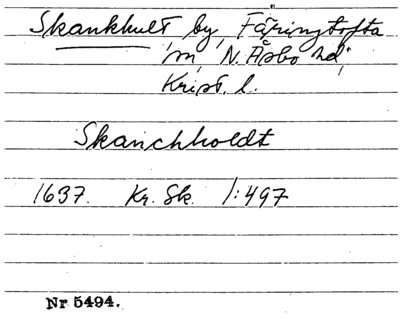 Skankhult by, Färingtofta
m, N. Åsbo hd,
Krist. l.
Skanchholdt
1637. Kr. Sk. 1:497
Nr 5494.